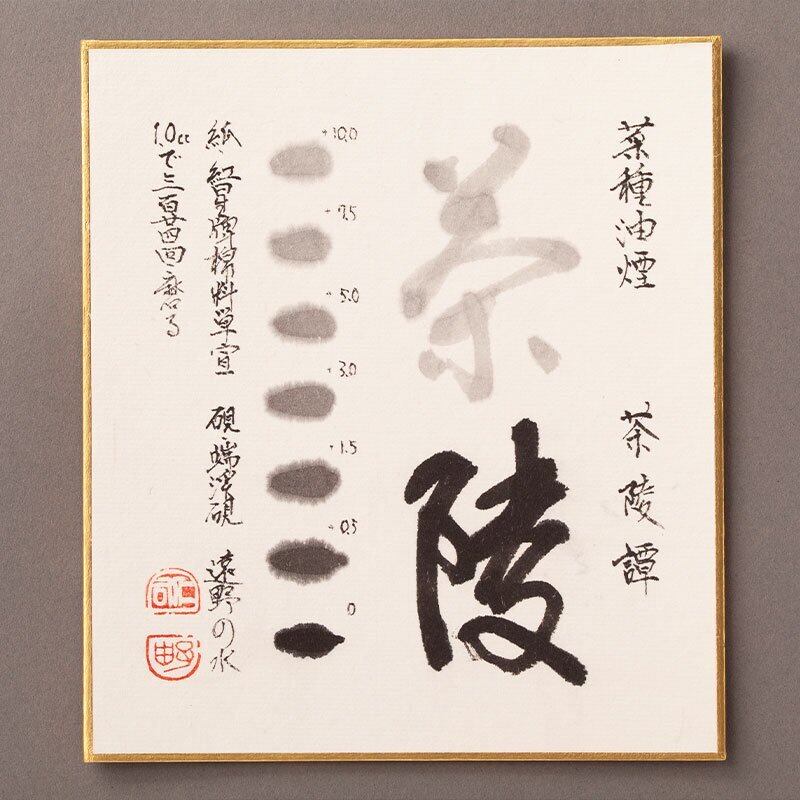 菜種油煙 茶陵譚
茶陵
+10.0
+7.5
+5.0
+3.0
+1.5
+0.5
0
紙・紅星牌棉料単宣 硯・端渓硯 遠野の水
1.0ccで三百廿四回磨る